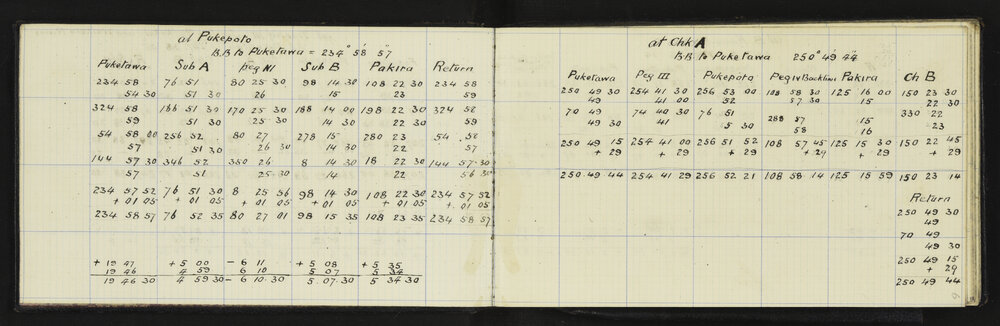 at Pukepoto
B.B to Puketawa = 234° 58' 57"
Puketawa Sub A peg N1 Sub B Pakira Return
234 58 76 51 80 25 30 98 14 30 108 22 30 234 58
54 30 51 30 26 15 23 59
324 58 166 51 30 170 25 30 188 14 00 198 22 30 324 58
59 51 30 25 30 14 30 22 30 59
54 58 00 256 52 80 27 278 15 280 23 54 58
57 51 30 26 30 14 30 22 57
144 57 30 346 52 350 26 8 14 30 18 22 30 144 57 30
57 51 25 30 14 22 56 30
234 57 52 76 51 30 8 25 56 98 14 30 108 22 30 234 57 52
+ 01 05 + 01 05 + 01 05 + 01 05 + 01 05 + 01 05
234 58 57 76 52 35 80 27 01 98 15 35 108 23 35 234 58 57
+ 19 47 + 5 00 - 6 11 + 5 08 + 5 35
19 46 4 59 6 10 5 07 5 34
19 46 30 4 59 30 - 6 10 30 5 07 30 5 34 30
at Chk A
B.B to Puketawa 250° 49' 44"
Puketawa Peg III Pukepoto Peg IV Pakira Ch B
250 49 30 254 41 30 256 53 00 108 58 30 125 16 00 150 23 30
49 41 00 52 57 30 15 22 30
70 49 74 40 30 76 51 288 57 15 330 22
49 30 41 5 30 58 16 23
250 49 15 254 41 00 256 51 52 108 57 45 125 15 30 150 22 45
+ 29 + 29 + 29 + 29 + 29 + 29
250 49 44 254 41 29 256 52 21 108 58 14 125 15 59 150 23 14
Return
250 49 30
49
70 49
49 30
250 49 15
+ 29
250 49 44